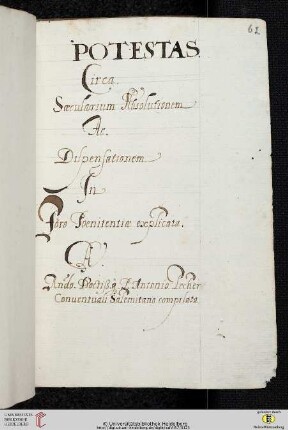 62
POTESTAS.
Circa
Sæcularium Absolutionem
Ac
Dispensationem
In
Foro Poenitentiæ explicata.
A
Rndo. P. Antonio
Conventuali Salemitano compilata.
© Universitätsbibliothek Heidelberg